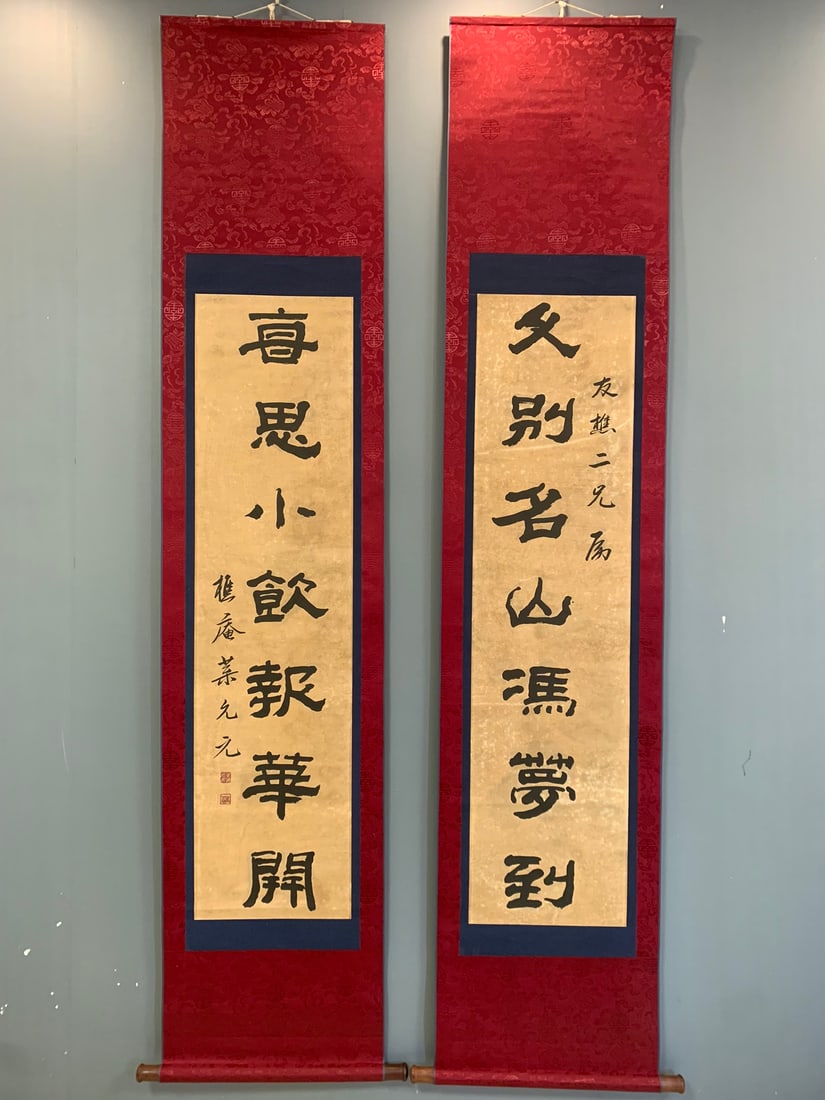 久別名山馮夢到
友樵二兄属
思小飲報華開
樵庵葉允元